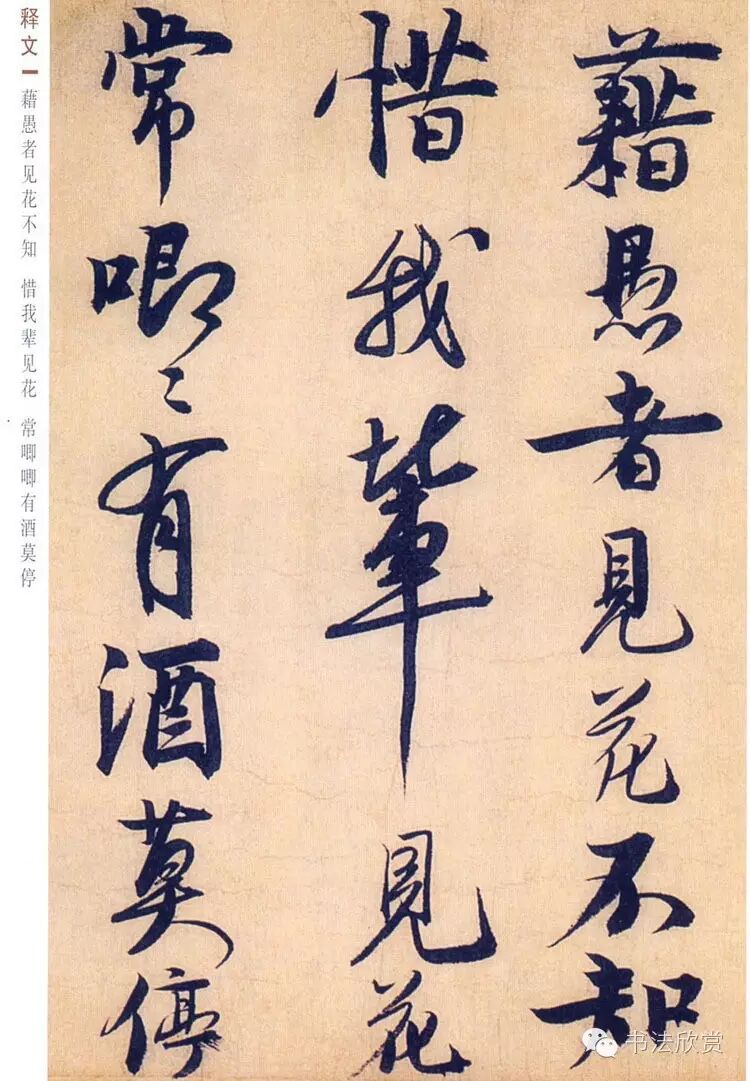 藉愚者見花不知
惜我輩見花
常唧〻有酒莫停
释文一
藉愚者见花不知 惜我辈见花 常唧唧有酒莫停
书法欣赏